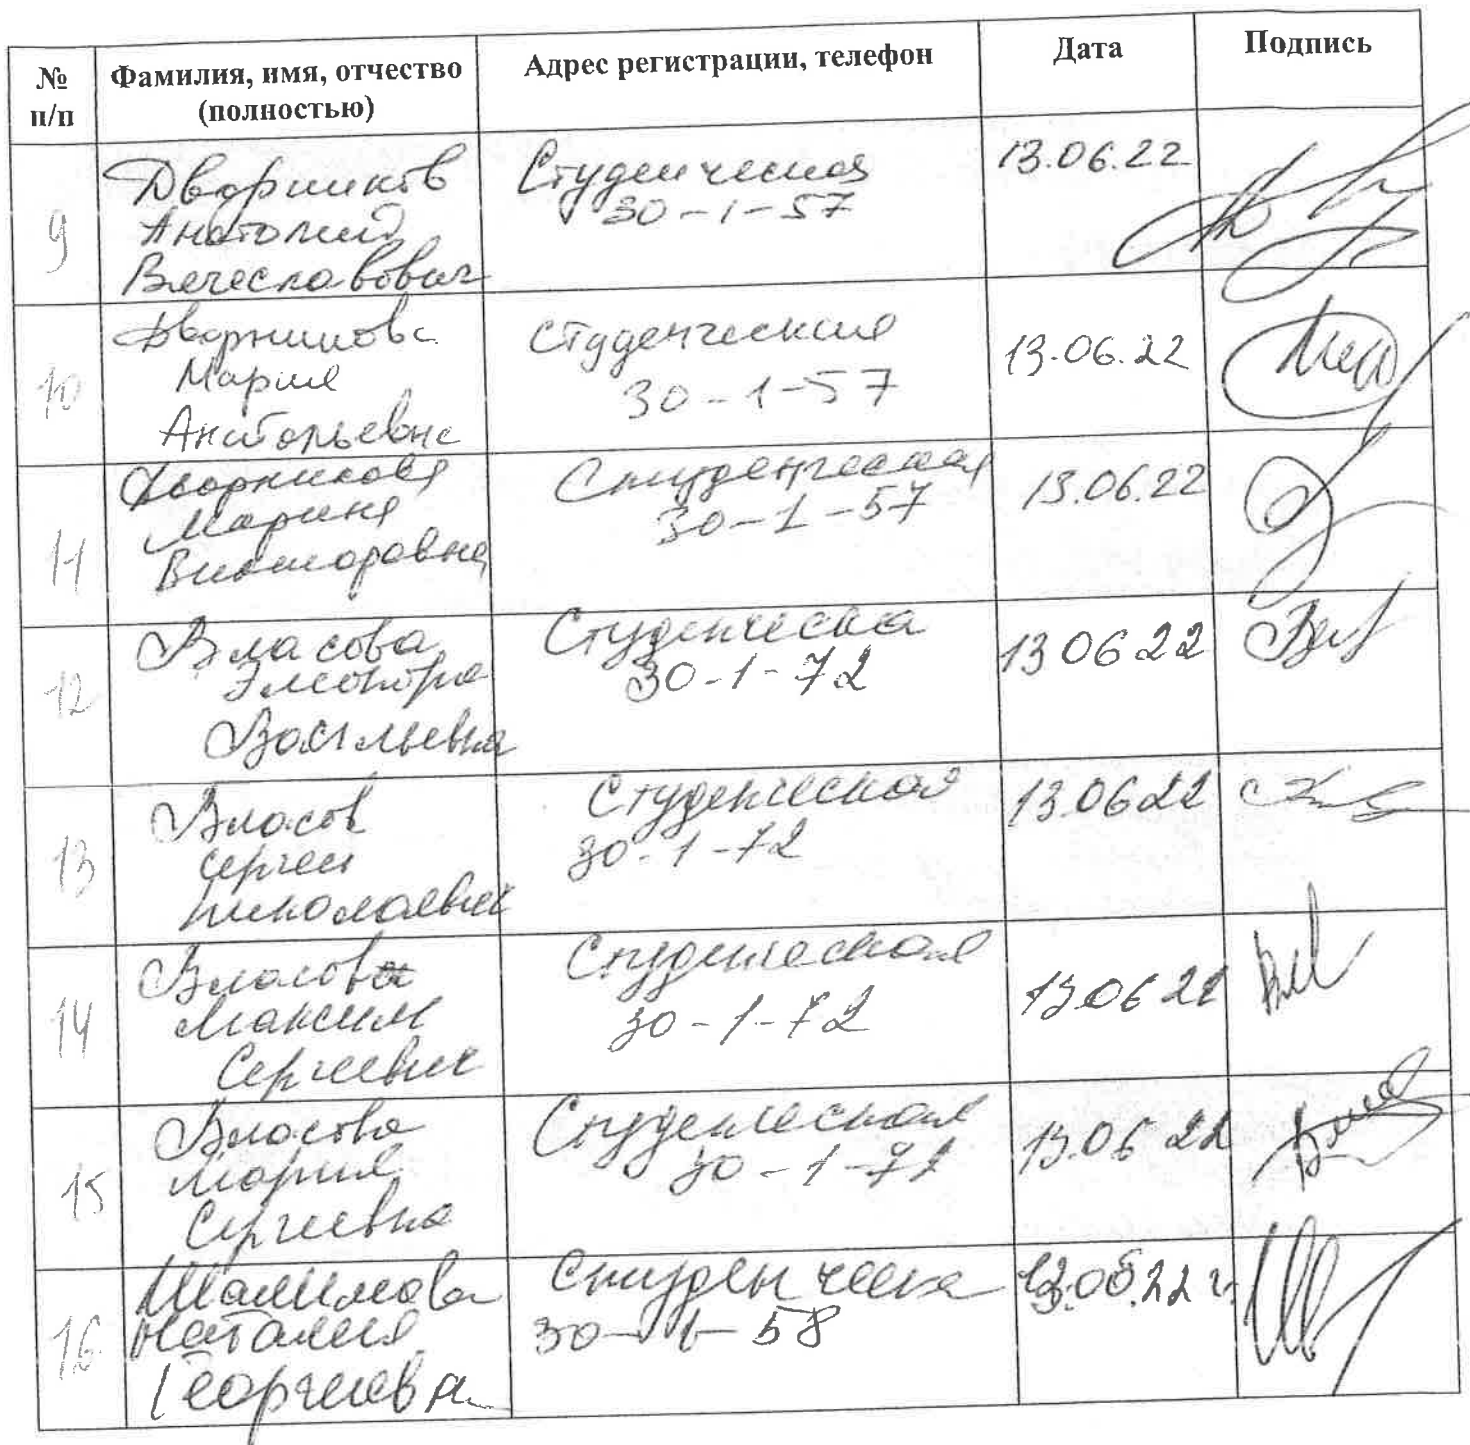 № п/п
Фамилия, имя, отчество (полностью)
Адрес регистрации, телефон
Дата
Подпись
9
Дворников
Анатолий
Вячеславович
Студенческая
30-1-57
13.06.22
10
Дворникова
Мария
Анатольевна
Студенческая
30-1-57
13.06.22
11
Дворникова
Марина
Викторовна
Студенческая
30-1-57
13.06.22
12
Власова
Элеонора
Васильевна
Студенческа
30-1-72
13 06 22
13
Власов
Сергей
Николаевич
Студенческая
30-1-72
13.06 22
14
Власов
Максим
Сергеевич
Студенческая
30-1-72
13.06 22
15
Власова
Мария
Сергеевна
Студенческая
30-1-72
13.06 22
16
Шалимова
Наталия
Георгиевна
Студенческа
30-1-58
13.06.22 г.